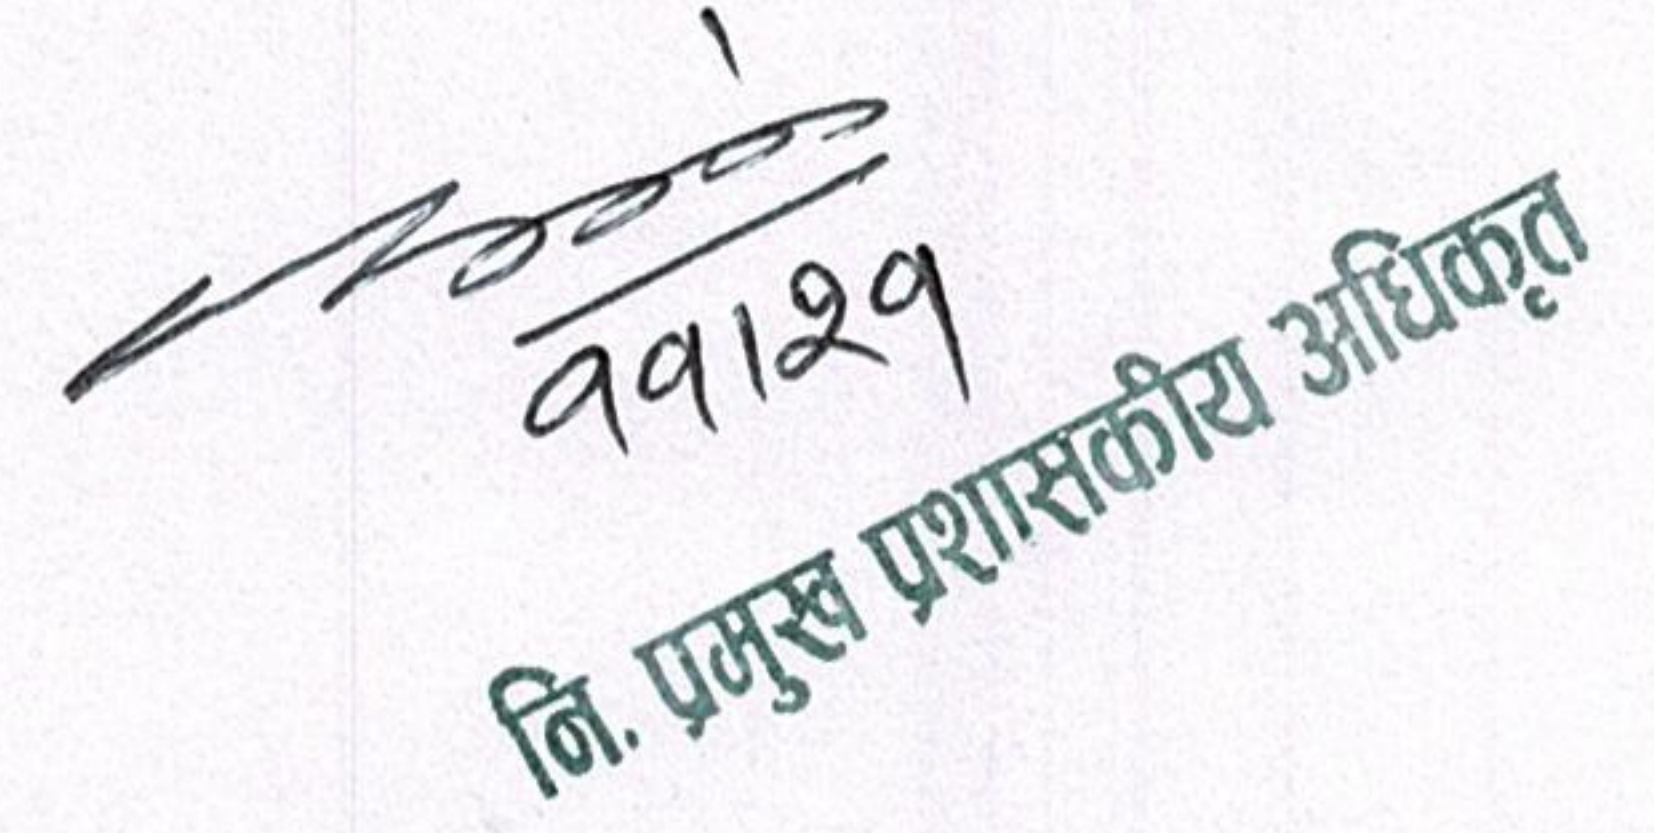 ११।२१
नि. प्रमुख प्रशासकीय अधिकृत